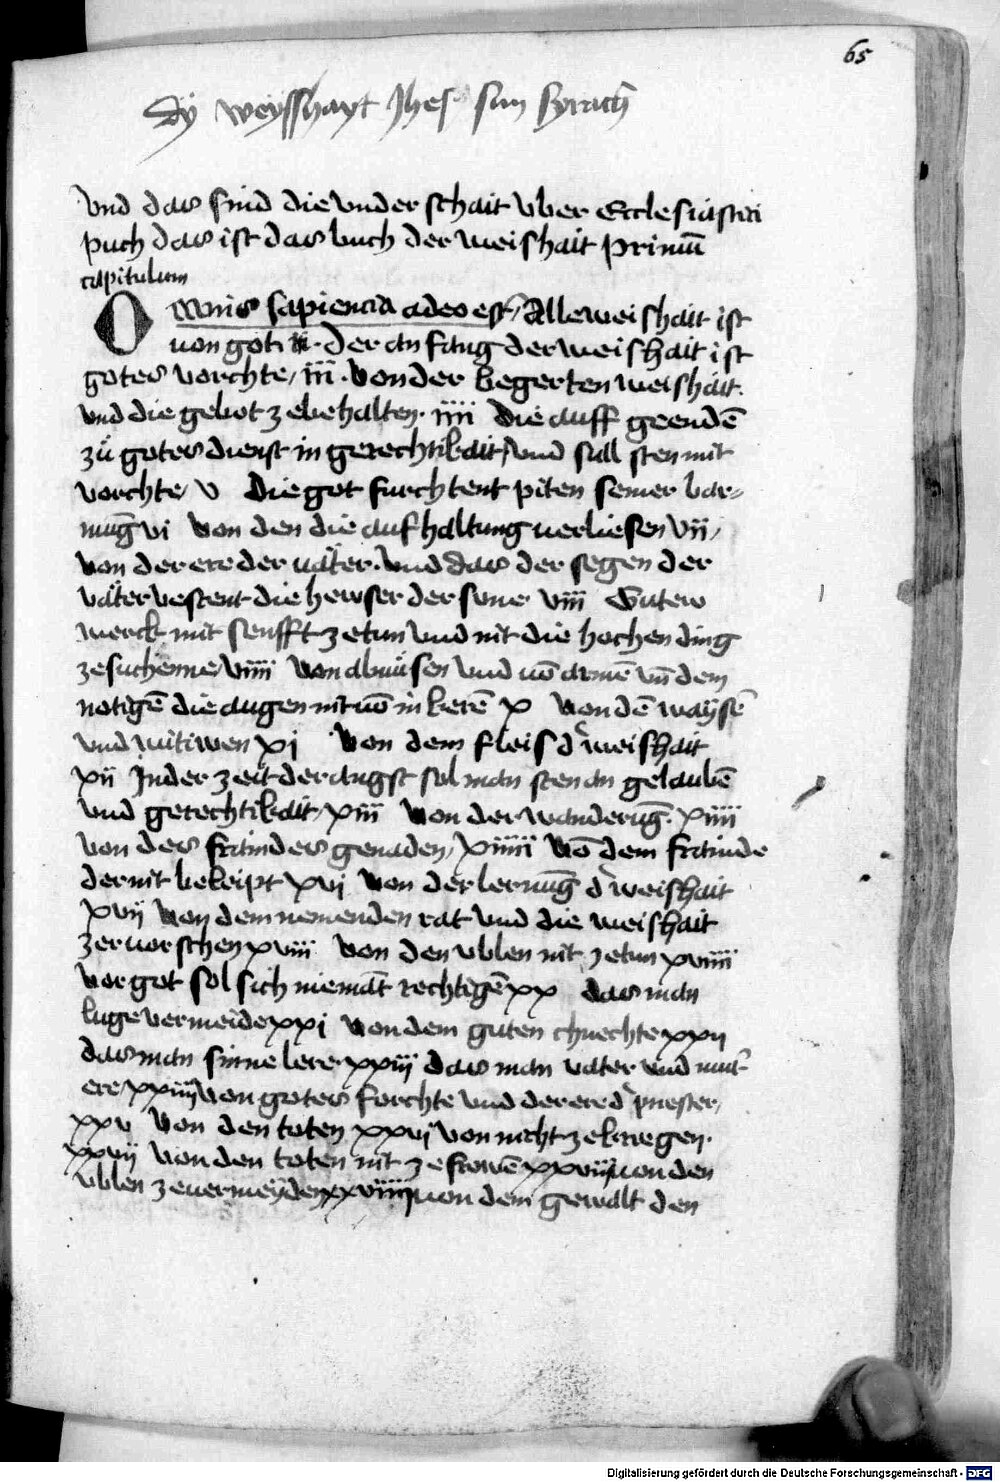 65
Dy weysshayt Jhes sun Syrach
Vnd das sind die vnderschait vber Ecclesiastici
puch das ist das buch der weishait primū
capitulum
Omnis sapiencia a deo est / Alle weishait ist
von got ii · Der anfang der weishait ist
gotes vorchte / iii · Von der begerten weishait ·
vnd die gebot ze behalten · iiii Die auff geendē
zů gotes dienst in gerechtikait / vnd sull sten mit
vorchte / v Die got furchtent piten seiner bar=
mūg vi Von den die aufhaltung verliesen vii /
von der ere der väter · vnd das der segen der
väter vestent die hewser der sune viii Gutew
werck mit senfft ze tun vnd nit die hochen ding
ze suchenne / viiii Von almůsen vnd vō armē vn̄ dem
notigē die augen nit vō in kerē x Von dē waysē
vnd witiwen xi Von dem fleis d' weishait
xii In der zeit der angst sol man sten an gelaubē
vnd gerechtikait / xiii Von der wanderūg · xiiii
von des fraindes genaden / xiiiii Vō dem frainde
der nit beleipt xvi Von der lernūg d' weishait
xvii Von dem nemenden rat vnd die weishait
zervorschen xviii Von den vblen nit ze tun xviiii
Vor got sol sich niemāt rechtigē xx das man
luge vermeide xxi Von dem guten chnechte xxii
das man sinne lere xxiii das man vater vnd mut'
ere / xxiiii Von gotes forchte vnd der ere d' priester /
xxv Von den toten xxvi Von nicht ze kriegen ·
xxvii Von den toten nit ze frowē xxviii von den
vblen ze vermeyden xxviiii von dem gewalt den
Digitalisierung gefördert durch die Deutsche Forschungsgemeinschaft - DFG